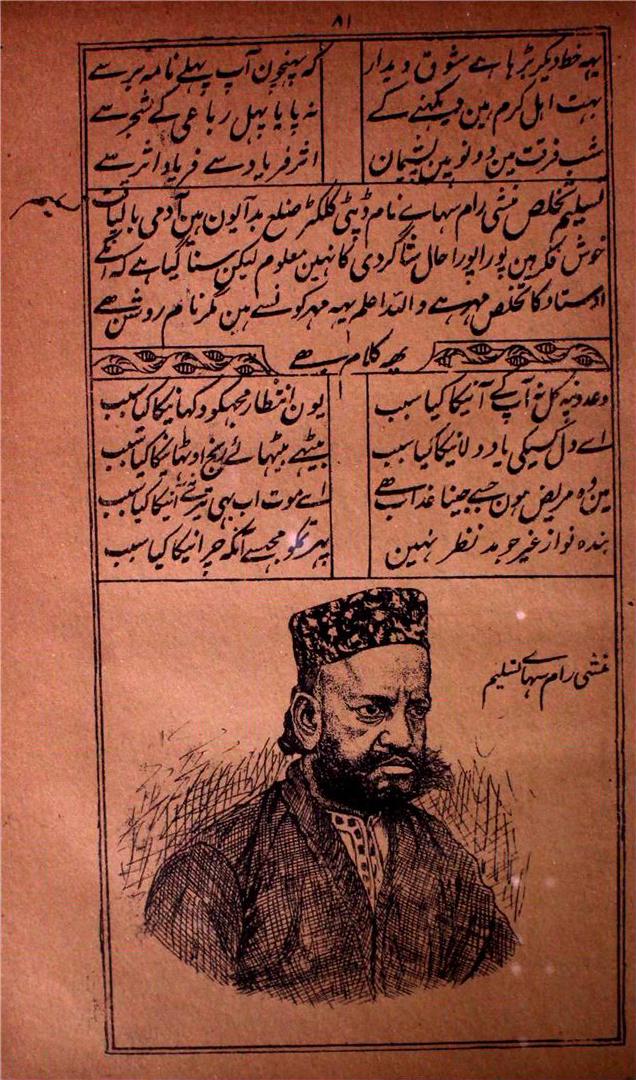 ۸۱
یہہ خط دیکر بڑہا ہے شوق دیدار کہ پہنچین آپ پہلے نامہ بر سے
بہت اہل کرم ہین دیکہنے کے نہ پایا پہل رباعی کے شجر سے
شب فرقت مین دونو ہین پشیمان اثر فریاد سے فریاد اثر سے
تسلیم تخلص منشی رام سہاے نام ڈپٹی کلکٹر ضلع بدایون ہین آدمی بالیاقت
خوش فکر ہین پورا پورا حال شاگردی کا نہین معلوم لیکن سنا گیا ہے کہ انکے
اوستاد کا تخلص مہر ہے واللہ اعلم یہہ مہر کونسے ہین مگر نام روشن ہے
یہ کلام ہے
وعدہ پہ کل نہ آپ کے آنیکا کیا سبب یون انتظار مجہکو دکہانیکا کیا سبب
اے دل کسیکی یاد دلانیکا کیا سبب بیٹہے بیٹہائے رنج اوٹہانیکا کیا سبب
مین وہ مریض ہون جسے جینا عذاب ہے اے موت اب بہی تیرے نہ آنیکا کیا سبب
بندہ نواز غیر جو مد نظر نہین پہر تمکو مجہسے آنکہ چرانیکا کیا سبب
منشی رام سہاے تسلیم